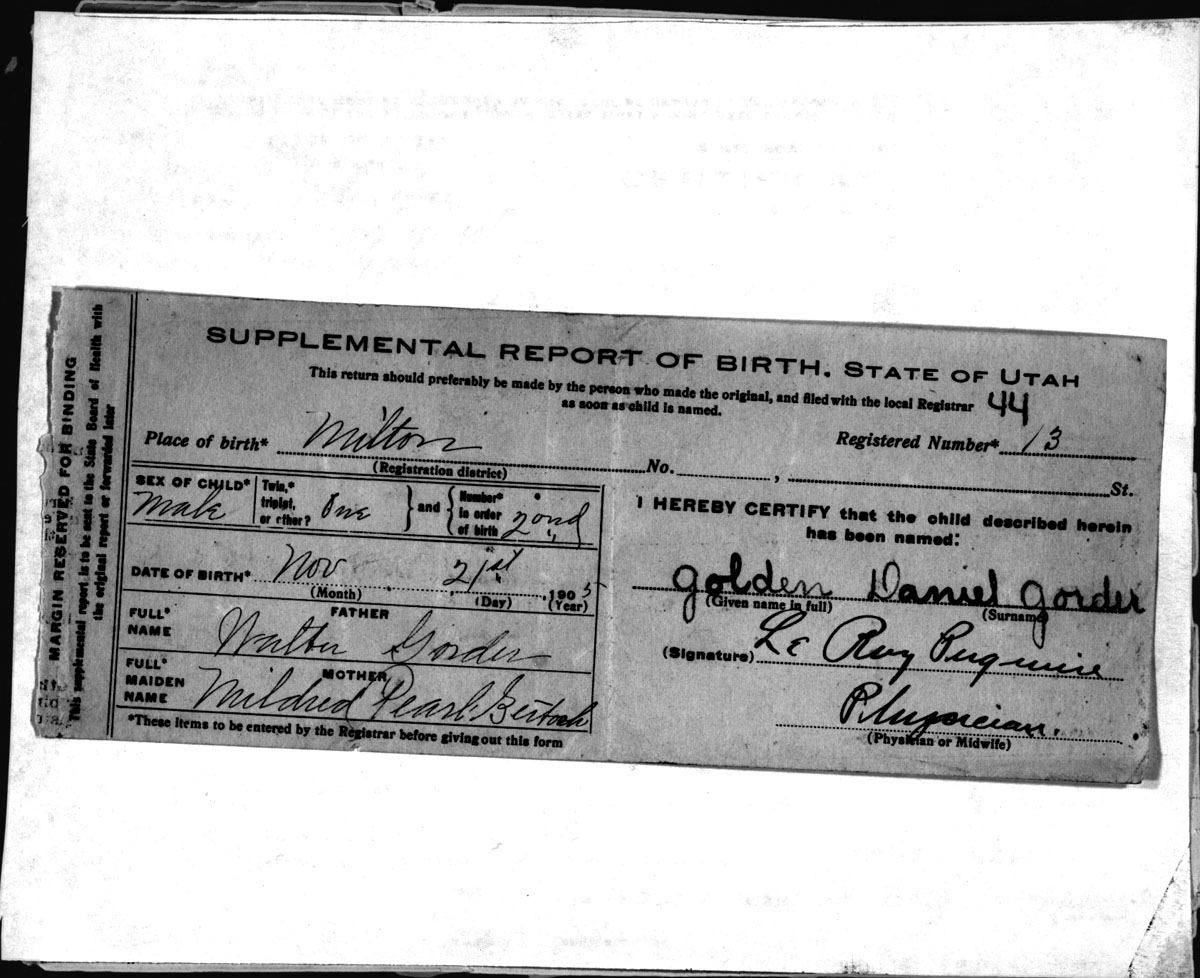 MARGIN RESERVED FOR BINDING
This supplemental report is to be sent to the State Board of Health with
the original report or forwarded later
SUPPLEMENTAL REPORT OF BIRTH. STATE OF UTAH
This return should preferably be made by the person who made the original, and filed with the local Registrar
as soon as child is named.
44
Place of birth* Milton
Registered Number* 13
(Registration district)
No. , St.
SEX OF CHILD* Male
Twin,* triplet, or other? One } and { Number* in order of birth 2ond
DATE OF BIRTH* Nov 21st , 1905
(Month) (Day) (Year)
FATHER
FULL* NAME Walter Gorder
MOTHER
FULL* MAIDEN NAME Mildred Pearl
*These items to be entered by the Registrar before giving out this form
I HEREBY CERTIFY that the child described herein
has been named:
Golden Daniel Gorder
(Given name in full) (Surname)
(Signature) Le Roy
Physician.
(Physician or Midwife)